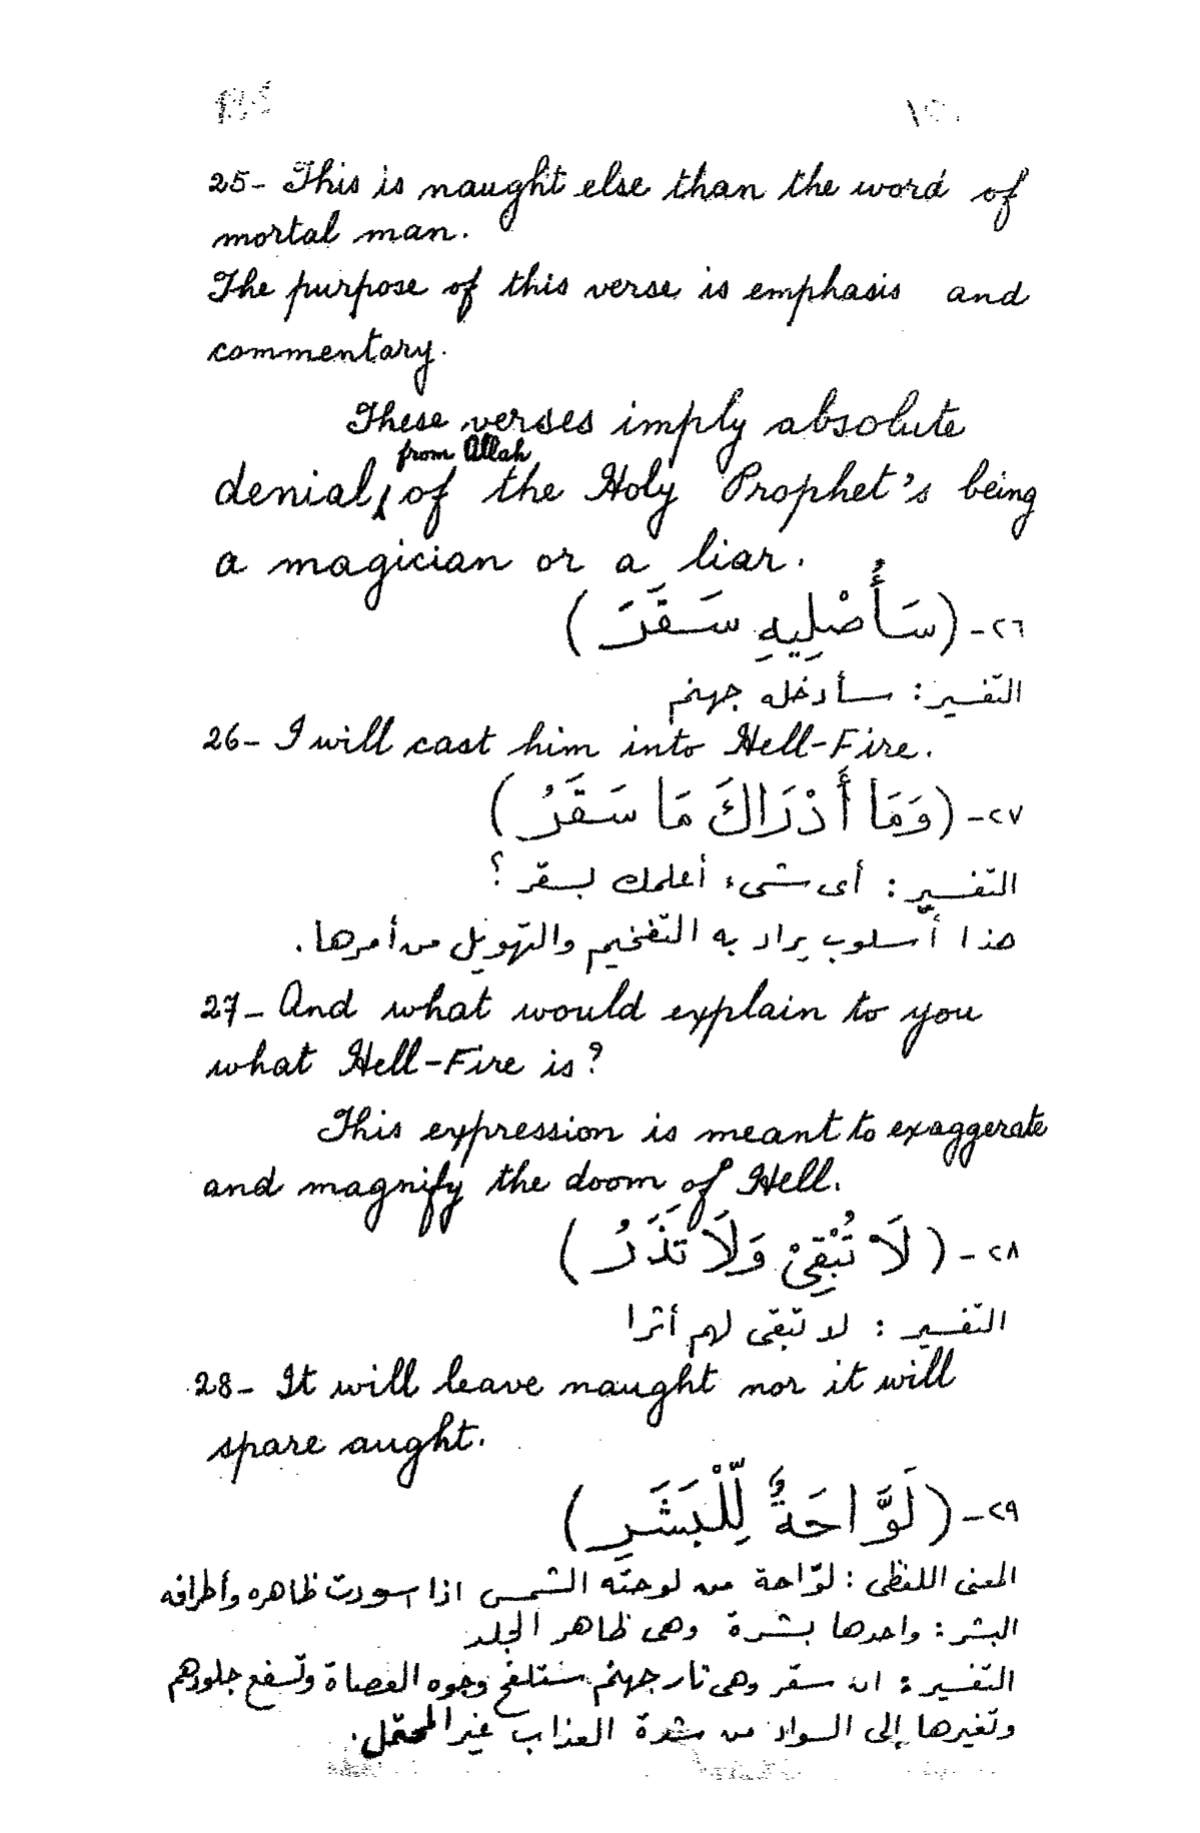 25- This is naught else than the word of
mortal man.
The purpose of this verse is emphasis and
commentary.
These verses imply absolute
from Allah
denial, of the Holy Prophet's being
a magician or a liar.
٢٦- (سَأُصْلِيهِ سَقَرَ)
التّفسير: سأدخله جهنم
26- I will cast him into Hell-Fire.
٢٧- (وَمَا أَدْرَاكَ مَا سَقَرُ)
التّفسير: أى شىء أعلمك بسقر؟
هذا أسلوب يراد به التّفخيم والتّهويل من أمرها.
27- And what would explain to you
what Hell-Fire is?
This expression is meant to exaggerate
and magnify the doom of Hell.
٢٨- (لَا تُبْقِىْ وَلَا تَذَرُ)
التّفسير: لا تبقى لهم أثرا
28- It will leave naught nor it will
spare aught.
٢٩- (لَوَّاحَةٌ لِّلْبَشَرِ)
المعنى اللفظى: لوّاحة من لوحته الشمس اذا سودت ظاهره وأطرافه
البشر: واحدها بشرة وهى ظاهر الجلد
التّفسير: ان سقر وهى نار جهنم ستلفح وجوه العصاة وتسفع جلودهم
وتغيرها إلى السواد من شدة العذاب غير المحتمل.